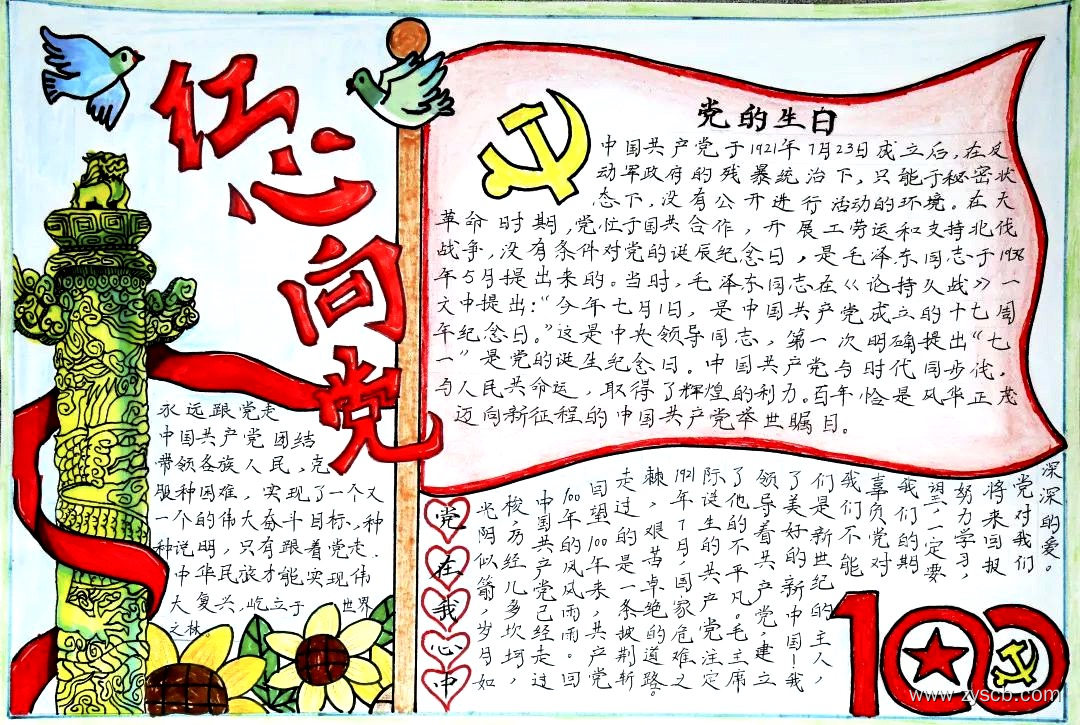 红心向党
党的生日
中国共产党于1921年7月23日成立后,在反
动军政府的残暴统治下,只能于秘密状
态下,没有公开进行活动的环境。在大
革命时期,党位于国共合作,开展工劳运和支持北伐
战争,没有条件对党的诞辰纪念日,是毛泽东同志于1938
年5月提出来的。当时,毛泽东同志在《论持久战》一
文中提出:“今年七月1日,是中国共产党成立的十七周
年纪念日。”这是中央领导同志,第一次明确提出“七
一”是党的诞生纪念日。中国共产党与时代同步伐,
与人民共命运,取得了辉煌的利力。百年恰是风华正茂
迈向新征程的中国共产党举世瞩目。
永远跟党走
中国共产党团结
带领各族人民,克
服种困难,实现了一个又
一个的伟大奋斗目标,种
种说明,只有跟着党走.
中华民族才能实现伟
大复兴,屹立于世界
之林。
党在我心中
光阴似箭,岁月如
梭,历经几多坎坷,
中国共产党已经走过
100年的风雨雨。回
回望100年来,共产党
走过的是一条披荆斩
棘,艰苦卓绝的道路。
1921年7月,国家危难之
际诞生的共产党注定
了他的不平凡。毛主席
领导着共产党,建立
了美好的新中国!我,
们是新世纪的主人,
我们不能
辜负党对
我们的期
望,一定要
努力学习,
将来回报
党对我们
深深的爱。
100
www.zyscb.com